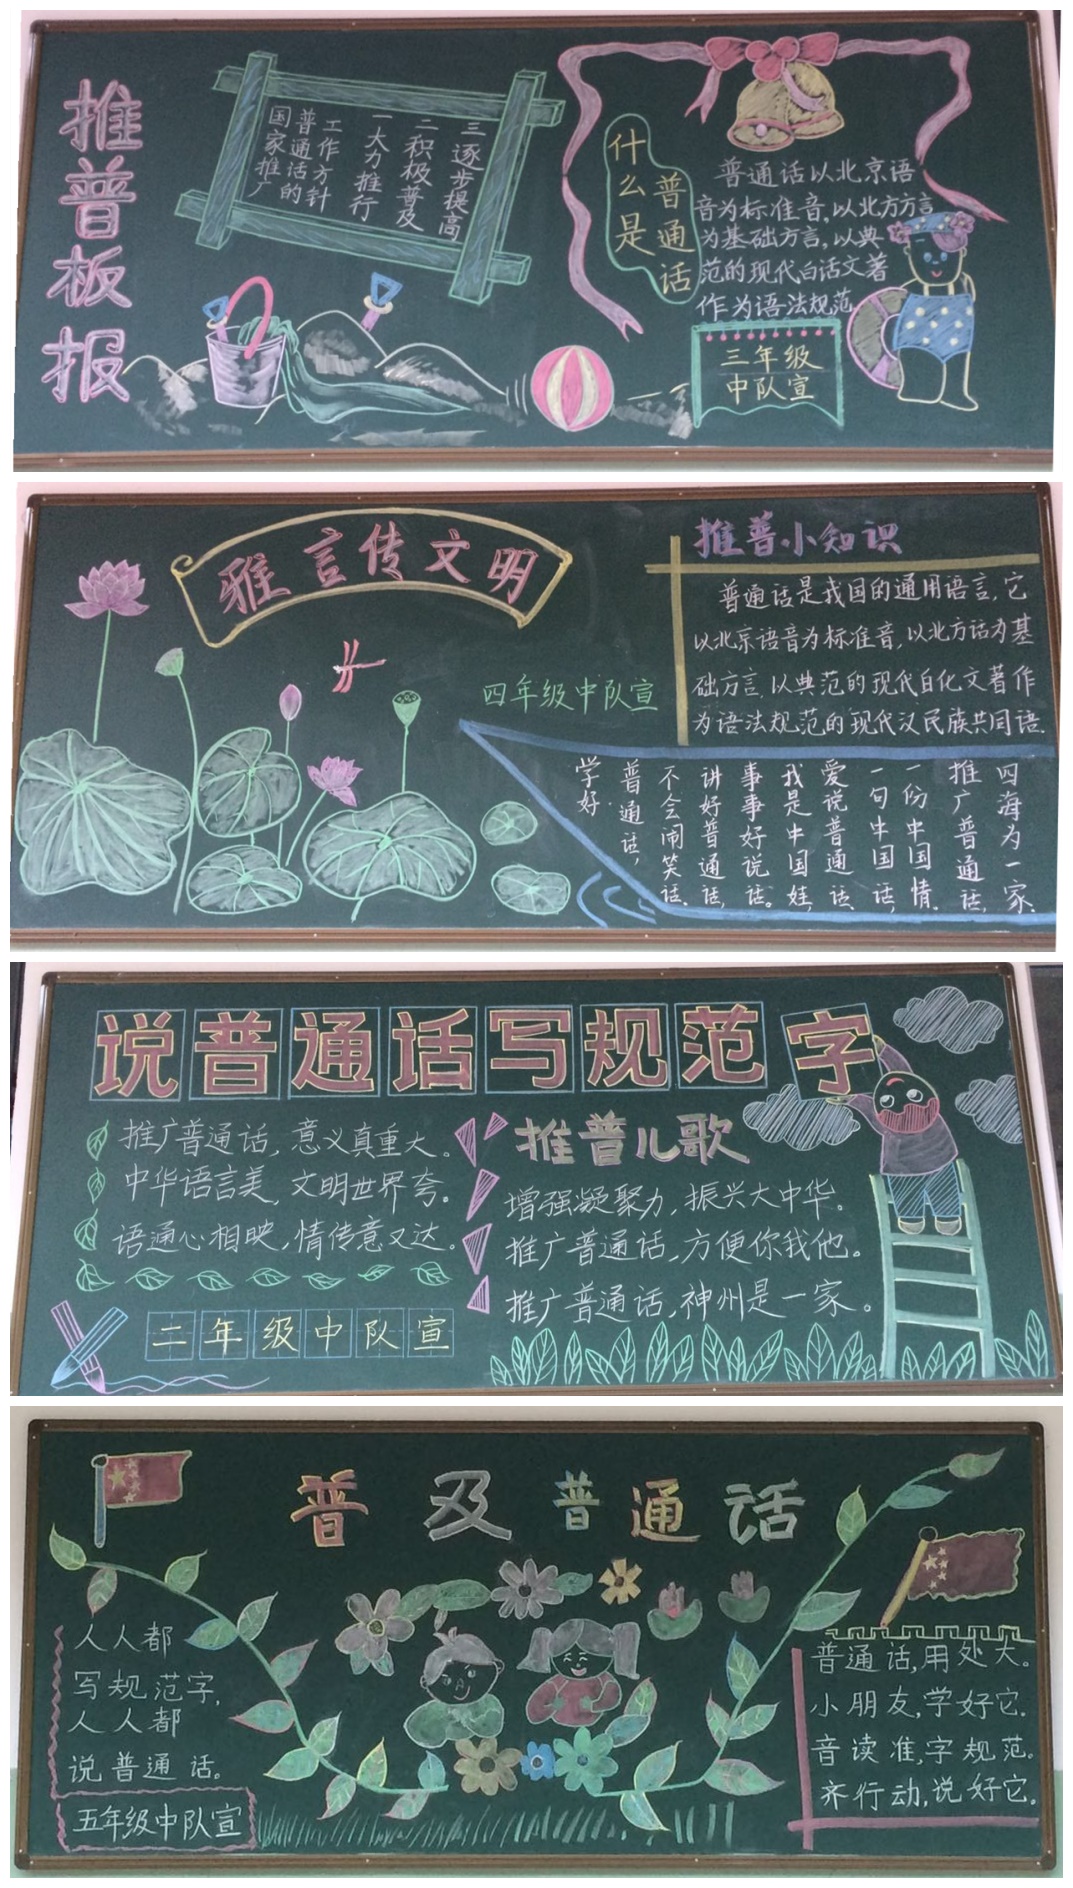 推普板报
国家推广
普通话的
工作方针
一大力推行
二积极普及
三逐步提高
什么是
普通话
普通话以北京语
音为标准音,以北方方言
为基础方言,以典
范的现代白话文著
作为语法规范
三年级
中队宣
雅言传文明
四年级中队宣
推普小知识
普通话是我国的通用语言,它
以北京语音为标准音,以北方话为基
础方言,以典范的现代白化文著作
为语法规范的现代汉民族共同语.
学好
普通话,
不会闹笑话.
讲好普通话,
事事好说话。
我是中国娃,
爱说普通话.
一句中国话,
一份中国情.
推广普通话,
四海为一家.
说普通话写规范字
推广普通话,意义真重大。
中华语言美,文明世界夸。
语通心相映,情传意又达。
二年级中队宣
推普儿歌
增强凝聚力,振兴大中华。
推广普通话,方便你我他。
推广普通话,神州是一家。
普及普通话
人人都
写规范字,
人人都
说普通话。
五年级中队宣
普通话,用处大。
小朋友,学好它.
音读准,字规范.
齐行动,说好它.